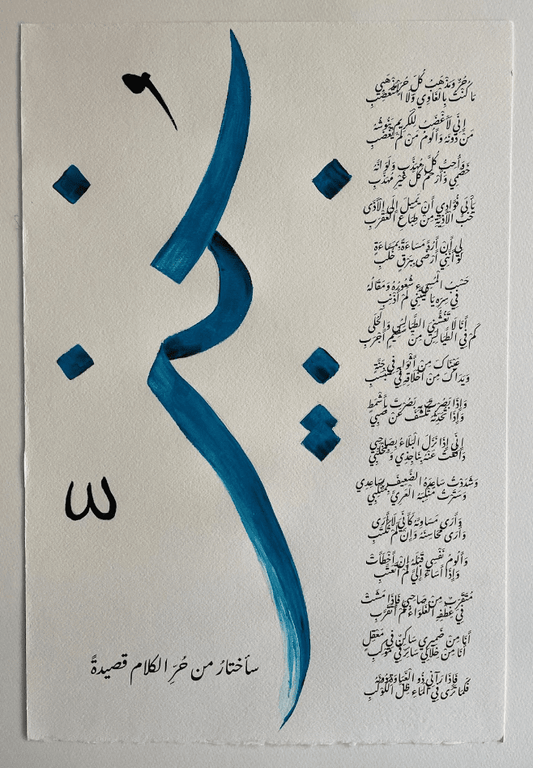 حر
حُرٌّ وَمَذْهَبُ كُلِّ حُرٍّ مَذْهَبِي
مَا كُنْتُ بِالغَاوِي وَلَا المُتَعَصِّبِ
إِنِّي لَأَغْضَبُ لِلْكَرِيمِ يَنُوشُهُ
مَنْ دُونَهُ وَأَلُومُ مَنْ لَمْ يَغْضَبِ
وَأُحِبُّ كُلَّ مُهَذَّبٍ وَلَوْ أَنَّهُ
خَصْمِي وَأَرْحَمُ كُلَّ غَيْرِ مُهَذَّبِ
يَأْبَى فُؤَادِي أَنْ يَمِيلَ إِلَى الأَذَى
حُبُّ الأَذِيَّةِ مِنْ طِبَاعِ العَقْرَبِ
لِي أَنْ أَرُدَّ مَسَاءَةً بِمَسَاءَةٍ
لَوْ أَنَّنِي أَرْضَى بِبَرْقٍ خُلَّبِ
حَسْبُ المُسِيءِ شُعُورُهُ وَمَقَالُهُ
فِي سِرِّهِ يَا لَيْتَنِي لَمْ أُذْنِبِ
أَنَا لَا تَغُشُّنِي الطَّيَالِسُ وَالحُلَى
كَمْ فِي الطَّيَالِسِ مِنْ سَقِيمٍ أَجْرَبِ
عَيْنَاكَ مِنْ أَثْوَابِهِ فِي جَنَّةٍ
وَيَدَاكَ مِنْ أَخْلَاقِهِ فِي سَبْسَبِ
وَإِذَا بَصُرْتَ بِهِ بَصُرْتَ بِأَشْمَطٍ
وَإِذَا تُحَدِّثُهُ تَكَشَّفَ عَنْ صَبِي
إِنِّي إِذَا نَزَلَ البَلَاءُ بِصَاحِبِي
دَافَعْتُ عَنْهُ بِنَاجِذِي وَبِمِخْلَبِي
وَشَدَدْتُ سَاعِدَهُ الضَّعِيفَ بِسَاعِدِي
وَسَتَرْتُ مَنْكِبَهُ العَرِيَّ بِمَنْكِبِي
وَأَرَى مَسَاوِئَهُ كَأَنِّي لَا أَرَى
وَأَرَى مَحَاسِنَهُ وَإِنْ لَمْ تُكْتَبِ
وَأَلُومُ نَفْسِي قَبْلَهُ إِنْ أَخْطَأَتْ
وَإِذَا أَسَاءَ إِلَيَّ لَمْ أَتَعَتَّبِ
مُتَقَرِّبٌ مِنْ صَاحِبِي فَإِذَا مَشَتْ
فِي عِطْفِهِ الغُلَوَاءُ لَمْ أَتَقَرَّبِ
أَنَا مِنْ ضَمِيرِي سَاكِنٌ فِي مَعْقِلٍ
أَنَا مِنْ خِلَالِي سَائِرٌ فِي مَوْكِبِ
فَإِذَا رَآنِي ذُو الغَبَاوَةِ دُونَهُ
فَكَمَا تَرَى فِي المَاءِ ظِلَّ الكَوْكَبِ
سأختارُ من حُرِّ الكلامِ قصيدةً